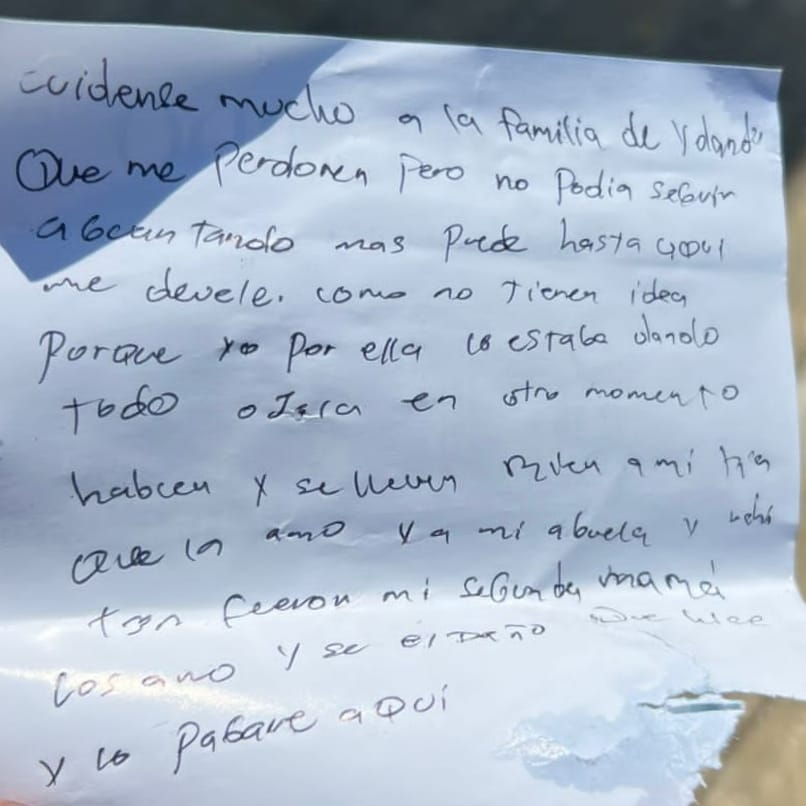 cuidense mucho a la familia de
Que me Perdonen Pero no Podia seguir
aguantando mas Puede hasta aqui
me devele. como no tienen idea
Porque yo Por ella lo estaba dando
todo ojala en otro momento
hablen y se lleven a mi tia
Que la amo y a mi abuela y
fueron mi segunda mamá
los amo y se el DaÑo Que hice
y lo Pagare aQUi